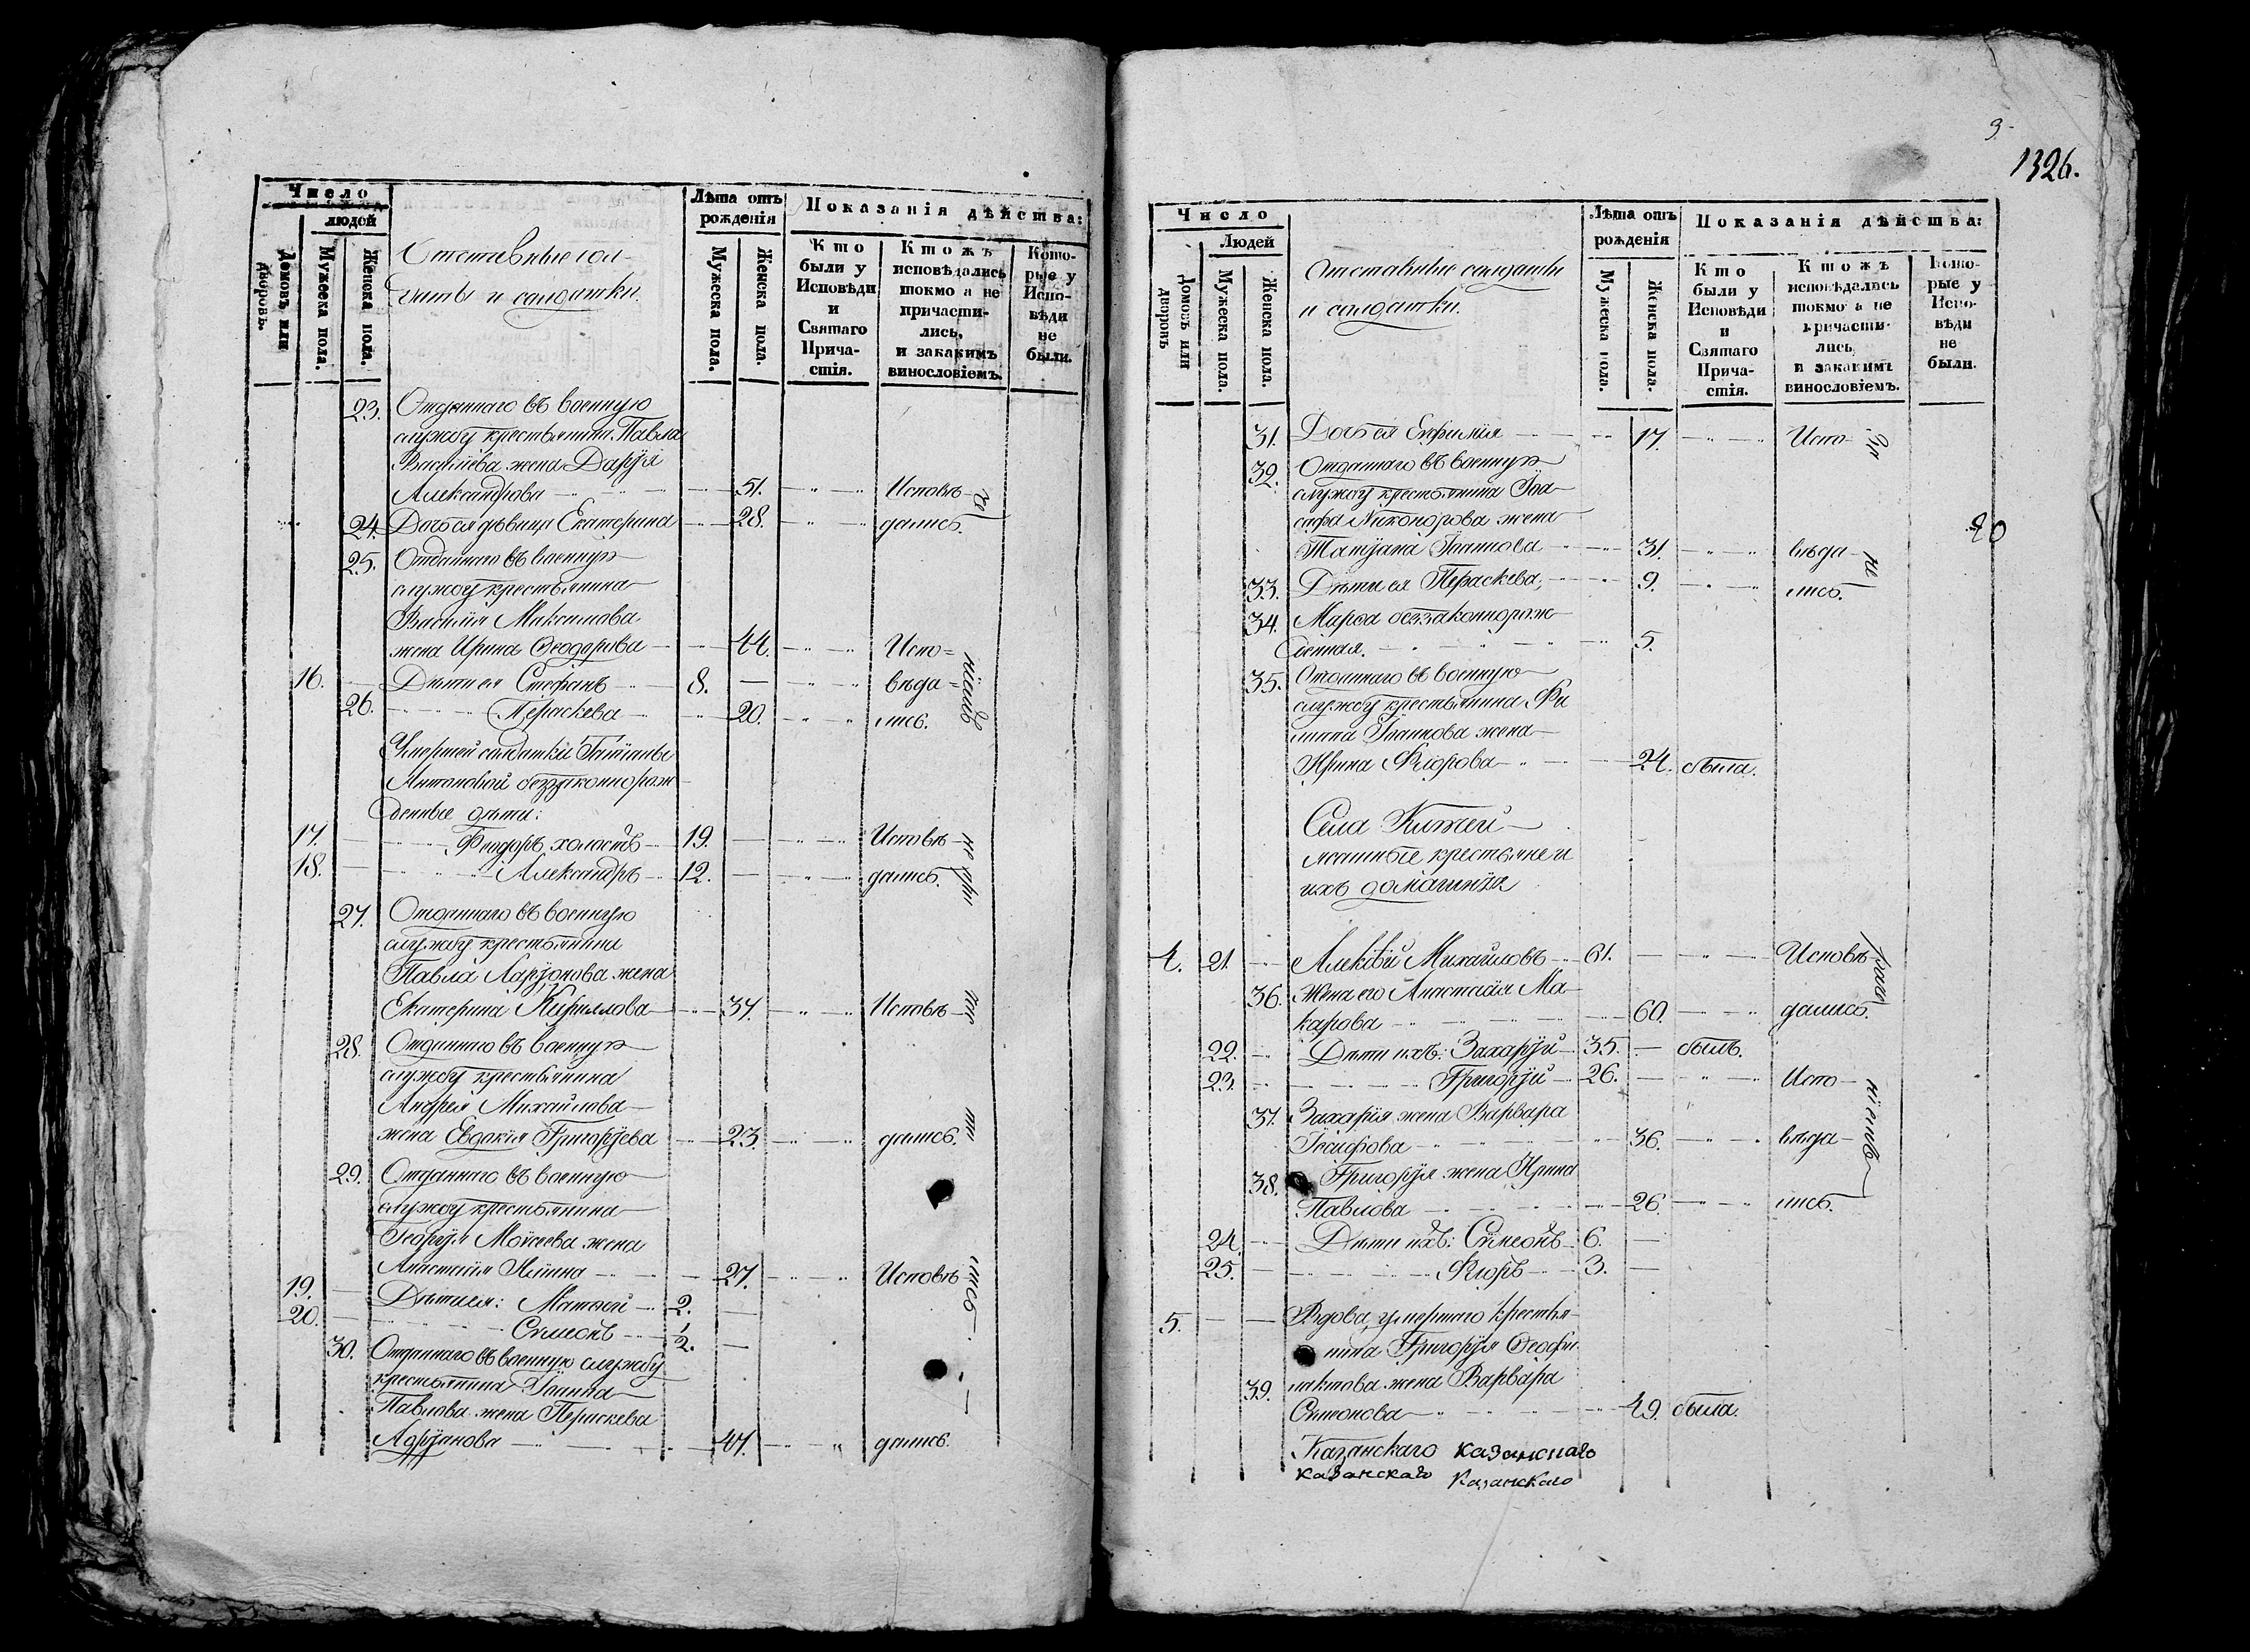 Число
людей
Домовъ или дворовъ.
Мужеска пола.
Женска пола.
Отставные сол-
даты и солдатки.
Лѣта отъ
рожденія
Мужеска пола.
Женска пола.
Показанія дѣйства:
Кто
были у
Исповѣди
и
Святаго
Прича-
стія.
Кто жъ
исповѣдались
токмо а не
причасти-
лись,
и закакимъ
винословіемъ.
Кото-
рые у
Испо-
вѣди
не
были.
23. Отданнаго въ военную
службу крестьянина Павла
Васильева жена Дарья
Александрова 51. Исповѣ-
24. Дочь ея дѣвица Екатерина 28. дались.
25. Отданнаго въ военную
службу крестьянина
Василія Максимова
жена Ирина Ѳеодорова 44. Испо=
16. Дѣти ея Стефанъ 8. вѣда=
26. Пераскева 20. лись.
Умершей солдатки Татіаны
Антоновой беззаконнорож-
денные дѣти:
17. Феодоръ, холостъ 19. Исповѣ-
18. Александръ 12. дались.
27. Отданнаго въ военную
службу крестьянина
Павла Ларіонова жена
Екатерина Кириллова 37. Исповѣ-
28. Отданнаго въ военную
службу крестьянина
Андрея Михайлова
жена Евдокія Григорьева 23. дались.
29. Отданнаго въ военную
службу крестьянина
Георгія Моисеева жена
Анастасія 27. Исповѣ-
19. Дѣти ея: Матѳей 2.
20. Сѵмеонъ 1/2.
30. Отданнаго въ военную службу
крестьянина Іоанна
Павлова жена Пераскева
Адріанова 47. дались.
3.
1326.
Число
Людей
Домовъ или дворовъ
Мужеска пола.
Женска пола.
Отставные солдаты
и солдатки.
Лѣта отъ
рожденія
Мужеска пола.
Женска пола.
Показанія дѣйства:
Кто
были у
Исповѣди
и
Святаго
Прича-
стія.
Кто жъ
исповѣдались
токмо а не
причасти-
лись,
и закакимъ
винословіемъ.
Кото-
рые у
Испо-
вѣди
не
были.
31. Дочь ея Евфимія 17. Испо-
32. Отданнаго въ военную
службу крестьянина Іоа-
сафа Никонорова жена
Татіана Іоаннова 31. вѣда-
33. Дѣти ея Пераскева, 9. лись.
34. Марѳа беззаконнорож-
денная. 5.
35. Отданнаго въ военную
службу крестьянина Фи
липпа Іоаннова жена
Ирина Флорова 24. была.
Села Китая
ясашные крестьяне и
ихъ домашнія
4. 21. Алексій Михайловъ 61. Исповѣ-
36. Жена его Анастасія Ма-
карова 60. дались.
22. Дѣти ихъ: Захарій 35. былъ.
23. Григорій 26. Испо-
37. Захарія жена Варвара
Іосифова 36. вѣда-
38. Григорія жена Ирина
Павлова 26. лись.
24. Дѣти ихъ: Сѵмеонъ 6.
25. Флоръ 3.
5. Вдова, умершаго крестья-
нина Григорія Ѳеофи
лактова жена Варвара
39. Сѵмеонова 49. была.
Казанскаго казанскаго
казанскаго Казанскаго